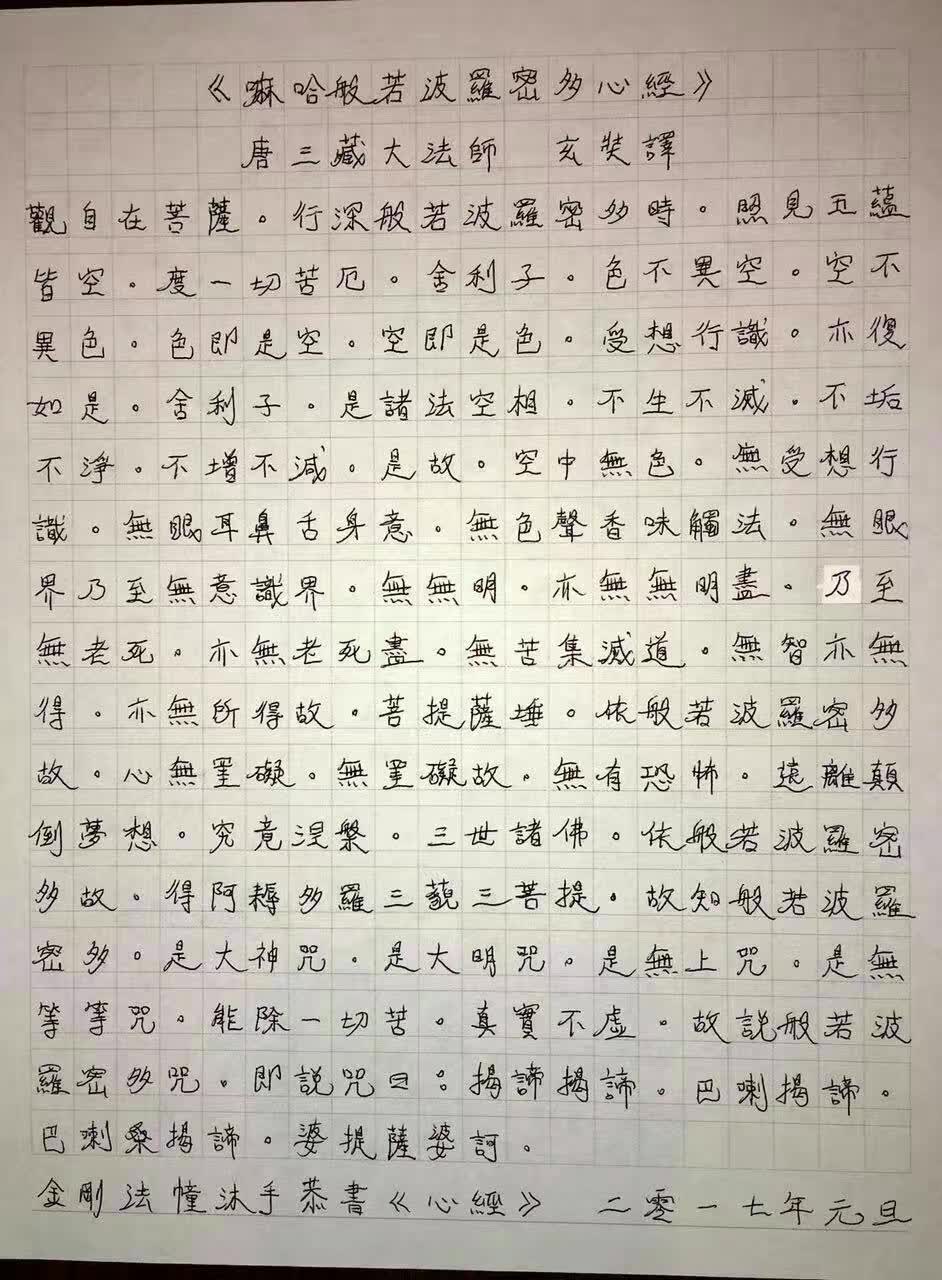 《嘛哈般若波羅密多心經》
唐三藏大法師 玄奘譯
觀自在菩薩。行深般若波羅密多時。照見五蘊
皆空。度一切苦厄。舍利子。色不異空。空不
異色。色即是空。空即是色。受想行識。亦復
如是。舍利子。是諸法空相。不生不滅。不垢
不淨。不增不減。是故。空中無色。無受想行
識。無眼耳鼻舌身意。無色聲香味觸法。無眼
界乃至無意識界。無無明。亦無無明盡。乃至
無老死。亦無老死盡。無苦集滅道。無智亦無
得。亦無所得故。菩提薩埵。依般若波羅密多
故。心無罣礙。無罣礙故。無有恐怖。遠離顛
倒夢想。究竟涅槃。三世諸佛。依般若波羅密
多故。得阿耨多羅三藐三菩提。故知般若波羅
密多。是大神咒。是大明咒。是無上咒。是無
等等咒。能除一切苦。真實不虛。故說般若波
羅密多咒。即說咒曰：揭諦揭諦。巴喇揭諦。
巴喇桑揭諦。婆提薩婆訶。
金剛法幢沐手恭書《心經》 二零一七年元旦